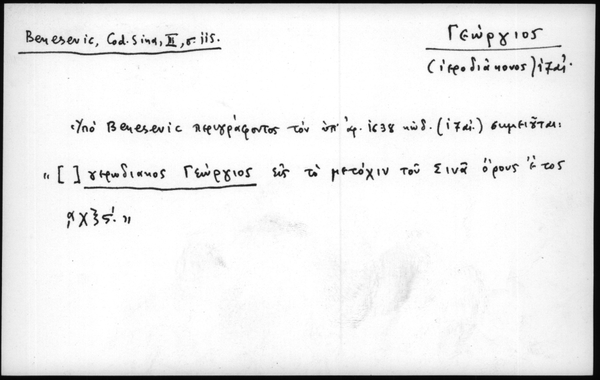 Benesevic, Cod. Sina, II, σ. 115.
Γεώργιος
(ἱεροδιάκονος) 17 αἰ.
Ὑπὸ Benesevic περιγράφοντος τὸν ὑπ' ἀρ. 1638 κώδ. (17 αἰ.) σημειοῦται:
"[ ] γερωδιακος Γεώργιος εἰς τὸ μετόχιν τοῦ Σινᾶ ὄρους ἔτος
͵αχξς΄."